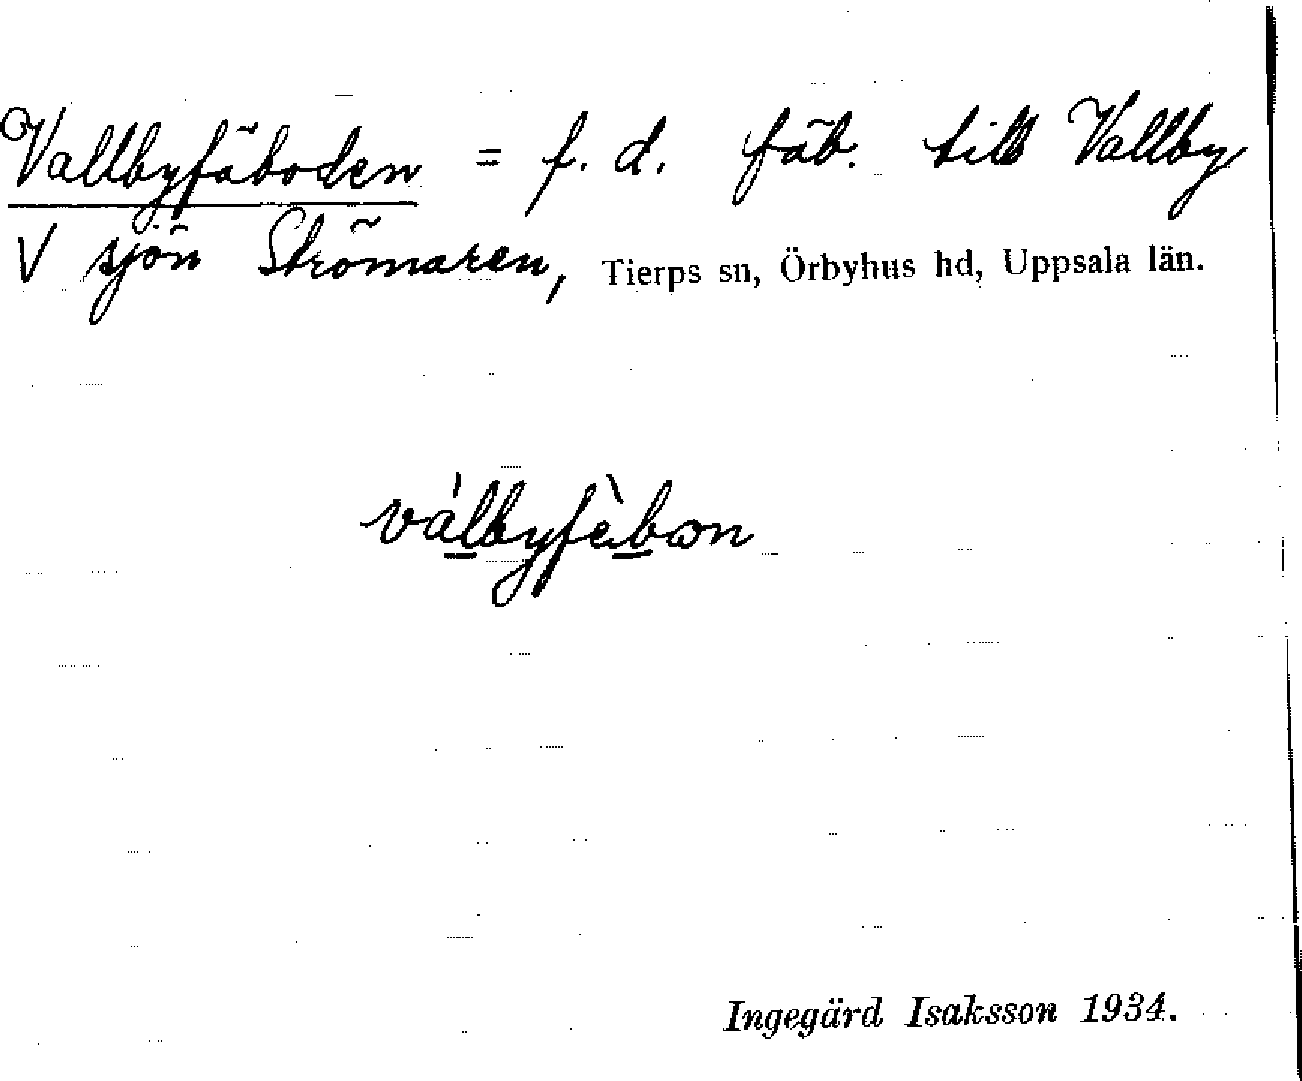 Vallbyfäboden = f. d. fäb. till Vallby
V sjön Strömaren, Tierps sn, Örbyhus hd, Uppsala län.
válbyfèbɷn
Ingegärd Isaksson 1934.